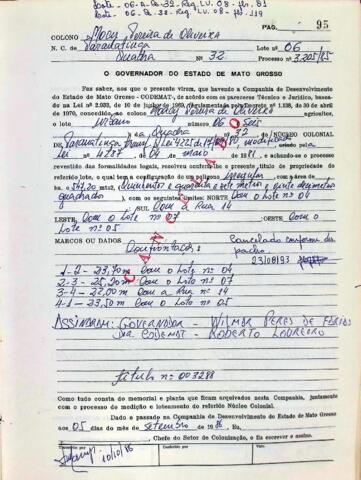 Lote - 06 - Q. 32 - Reg. LV. 08 - Fls. 119
95
COLONO Moacy Pereira de Oliveira
N. C. de Paranatinga Lote nº 06
Quadra Nº 32 Processo nº 3.205/85
O GOVERNADOR DO ESTADO DE MATO GROSSO
Faz saber, aos que o presente virem, que havendo a Companhia de Desenvolvimento
do Estado de Mato Grosso - CODEMAT-, de acordo com os pareceres Técnico e Jurídico, basea-
da na Lei nº 2.933, de 10 de junho de 1969, regulamentada pelo Decreto nº 1.138, de 30 de abril
de 1970, concedido ao colono Moacy Pereira de Oliveira agricultor,
o lote urbano número 06 Seis
da Quadra nº 32 NÚCLEO COLONIAL
DE Paranatinga criado pela
Lei nº 4287 de 04 de maio de 1981, e achando-se o processo
revestido das formalidades legais, resolveu conferir-lhe o presente título de propriedade do
referido lote, o qual tem a configuração de um polígono irregular, com a área de
ha. 547,20 mts (quinhentos e quarenta e sete metros e vinte decimetros
quadrados), com os seguintes limites: NORTE Com o lote nº 04
SUL Com a Rua 14
LESTE, Com o lote nº 07 :OESTE Com o
Lote nº 05
MARCOS OU DADOS Confrontações: Cancelado conforme des-
pacho
23/08/93
1-2 - 23,70m Com o Lote nº 04
2-3 - 25,20m Com o Lote nº 07
3-4 - 22,00m Com a Rua nº 14
4-1 - 23,50m Com o Lote nº 05
CANCELADO
ASSINARAM: GOVERNADOR - WILMAR PERES DE FARIAS
CODEMAT - ROBERTO LOUREIRO
Título nº 003288
Como tudo consta do memorial e planta que ficam arquivados nesta Companhia, juntamente
com o processo de medição e loteamento do referido Núcleo Colonial.
Dado e passado na Companhia de Desenvolvimento do Estado de Mato Grosso
aos 05 dias do mês de setembro de 1986, Eu,
, Chefe do Setor de Colonização, o fiz escrever e assino.
Conferido por
Visto
10/10/86